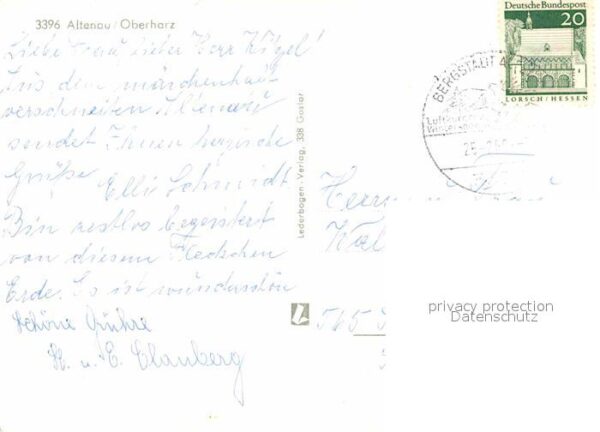 3396 Altenau/Oberharz
Liebe Frau, lieber Herr Kögel!
Aus dem märchenhaft
verschneiten Altenau
sendet Ihnen herzliche
Grüße
Elli Schmidt.
Bin restlos begeistert
von diesem Fleckchen
Erde. Es ist wunderschön
Schöne Grüße
H. u. E. Clauberg
Lederbogen-Verlag, 338 Goslar
Deutsche Bundespost
20
LORSCH/HESSEN
BERGSTADT
Luftkuror
Winterspo
Herrn
565
privacy protection
Datenschutz